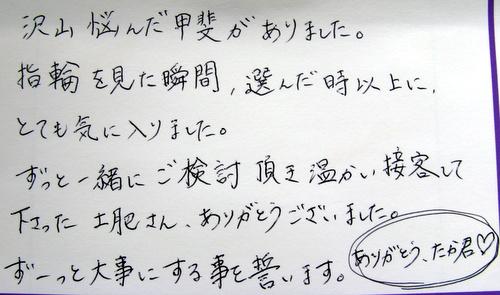 沢山悩んだ甲斐がありました。
指輪を見た瞬間,選んだ時以上に,
とても気に入りました。
ずっと一緒にご検討頂き温かい接客して
下さった土肥さん、ありがとうございました。
ずーっと大事にする事を誓います。
ありがとう、たか君♡